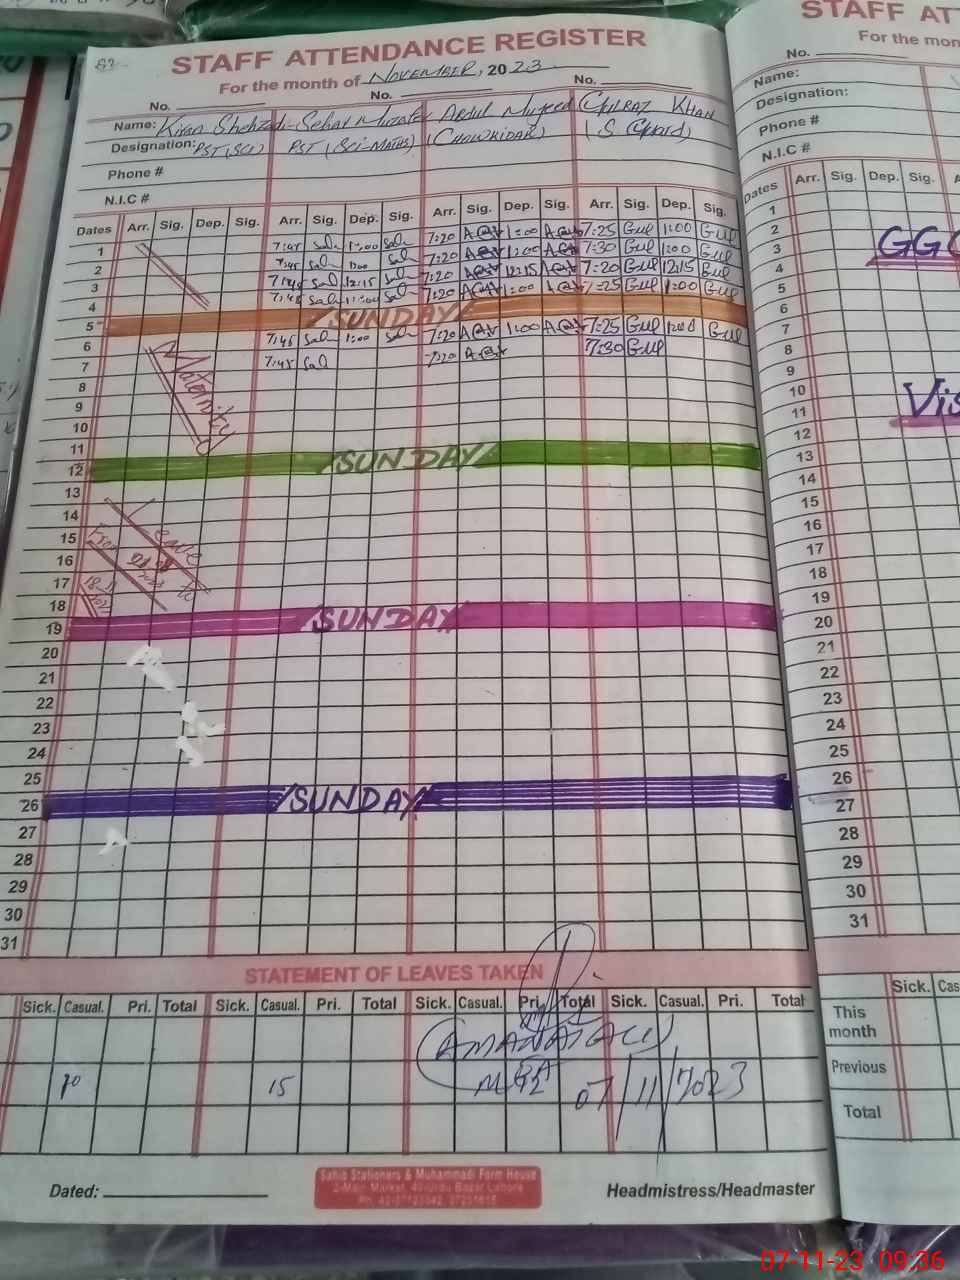 STAFF ATTENDANCE REGISTER
For the month of NOVEMBER, 2023
No. No. No.
Name: Kiran Shehzadi Sehar Abdul Mujeed Gulraz Khan
Designation: PST (SCI) PST (Sci-Maths) (Chowkidar) (S Guard)
Phone #
N.I.C #
Dates Arr. Sig. Dep. Sig. Arr. Sig. Dep. Sig. Arr. Sig. Dep. Sig. Arr. Sig. Dep. Sig.
1 7:45 Sah 1:00 Sah 7:20 1:00 7:25 Gul 1:00 Gul
2 7:45 Sah 1:00 Sah 7:20 1:00 7:30 Gul 1:00 Gul
3 7:45 Sah 12:15 Sah 7:20 12:15 7:20 Gul 12:15 Gul
4 7:45 Sah 1:00 Sah 7:20 1:00 7:25 Gul 1:00 Gul
5 SUNDAY
6 7:45 Sah 1:00 Sah 7:20 1:00 7:25 Gul 1:00 Gul
7 7:45 Sah 7:20 7:30 Gul
Maternity
8
9
10
11
12 SUNDAY
13
14
15 Leave
16 From to
17 18-11
18
19 SUNDAY
20
21
22
23
24
25
26 SUNDAY
27
28
29
30
31
STATEMENT OF LEAVES TAKEN
Sick. Casual. Pri. Total Sick. Casual. Pri. Total Sick. Casual. Pri. Total Sick. Casual. Pri. Total
(AMANAT ALI)
15
07/11/2023
Dated:
Sabia Stationers & Muhammadi Form House
Headmistress/Headmaster
STAFF AT
For the mon
No.
Name:
Designation:
Phone #
N.I.C #
Dates Arr. Sig. Dep. Sig. A
1
2
3 GGC
4
5
6
7
8
9
10 Vis
11
12
13
14
15
16
17
18
19
20
21
22
23
24
25
26
27
28
29
30
31
Sick. Cas
This month
Previous
Total
07-11-23 09:36